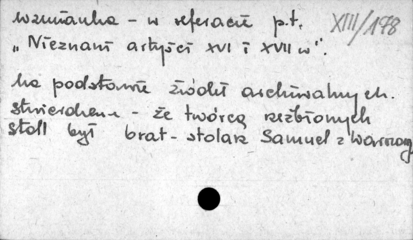 wzmianka - w referacie p.t. XIII/198
„Nieznani artyści XVI i XVII w".
Na podstawie źródeł archiwalnych.
stwierdzenie - że twórcą rzeźbionych
stall był brat - stolarz Samuel z Warszawy